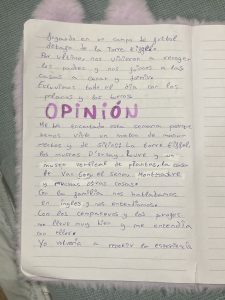 Jugando en un campo de futbol
debajo de la Torre Eiffel.
Por ultimo nos vinieron a recoger
los padres y nos fuimos a las
casas a cenar y dormir
Estuvimos todo el dia con los
OPINIÓN
Me ha encantado esta semana porque
hemos visto un monton de monu
mentos y de sitios: La torre Eiffel,
los museos D'Orsay, Louvre y un
museo vertical de plantas, la casa
de Van Gogh el sena, Montmartre
y muchas otras cosas.
Con la familia nos hablabamos
en ingles y nos entendiamos
Con los compañeros y los profes
me lleve muy bien y me entendia
con ellos.
Yo volveria a repetir la experiencia